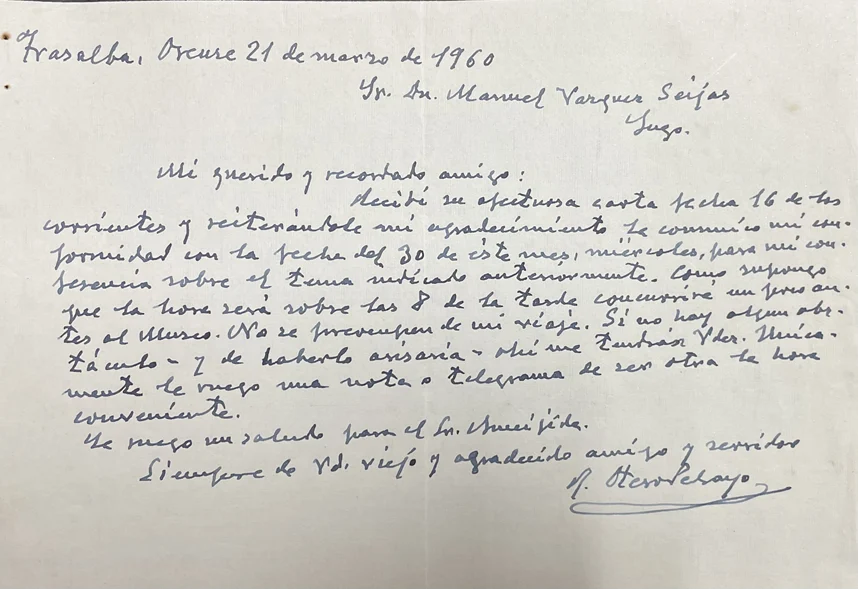 Trasalba, Orense 21 de marzo de 1960
Sr. Dn. Manuel Vazquez Seijas
Lugo.
Mi querido y recordado amigo:
Recibí su afectuosa carta fecha 16 de los
corrientes y reiterándole mi agradecimiento le comunico mi con-
formidad con la fecha del 30 de éste mes, miércoles, para mi con-
ferencia sobre el tema indicado anteriormente. Como supongo
que la hora será sobre las 8 de la tarde concurriré un poco an-
tes al Museo. No se preocupen de mi viaje. Si no hay algun obs-
táculo - y de haberlo avisaría - ahí me tendrán Vdes. Unica-
mente le ruego una nota o telegrama de ser otra la hora
conveniente.
Le ruego un saludo para el Sr.
Siempre de Vd. viejo y agradecido amigo y servidor
R. Otero Pedrayo